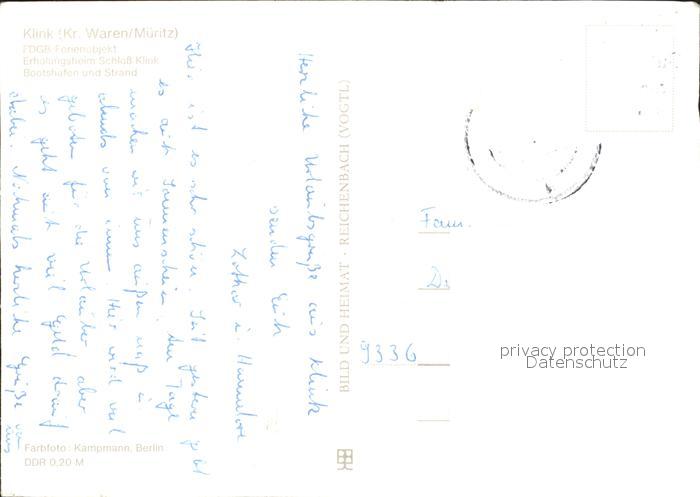 Klink (Kr. Waren/Müritz)
FDGB-Ferienobjekt
Erholungsheim Schloß Klink
Bootshafen und Strand
Herzliche Urlaubsgrüße aus Klink
senden Euch
Lothar u. Hannelore
Hier ist es sehr schön. Seit gestern geht
es mit Sonnenschein. Am Tage
machen wir uns außen naß u.
abends von innen. Hier wird viel
geboten für die Urlauber aber
es geht mit viel Geld drauf
dabei. Nochmals herzliche Grüße von
uns
BILD UND HEIMAT · REICHENBACH (VOGTL)
Fam.
9336
privacy protection
Datenschutz
Farbfoto: Kampmann, Berlin
DDR 0,20 M